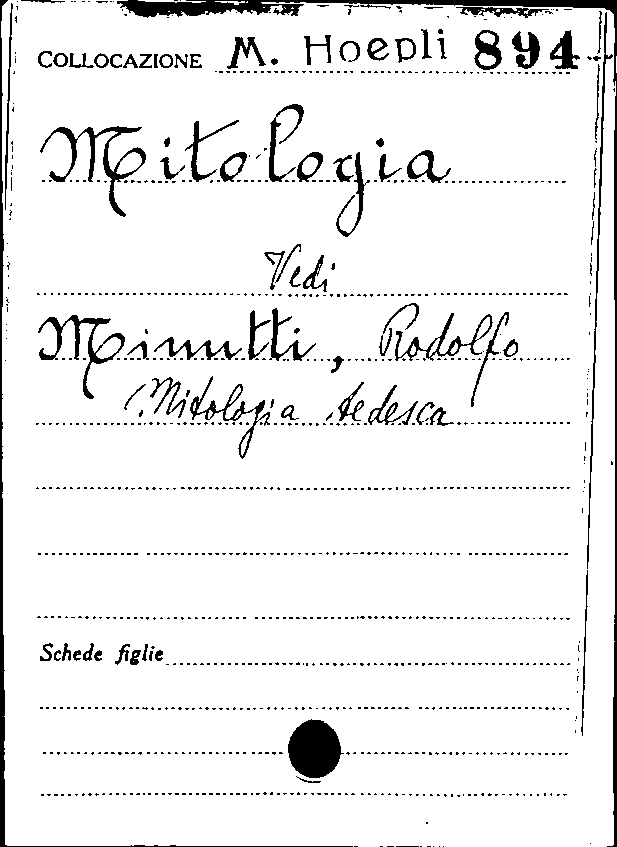 COLLOCAZIONE M. Hoepli 894
Mitologia
Vedi
Minutti, Rodolfo
Mitologia tedesca
Schede figlie